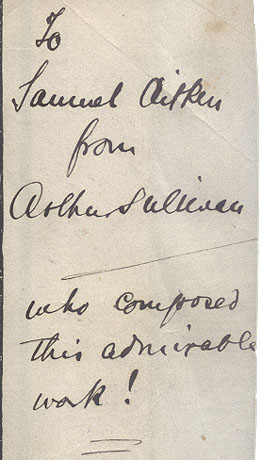 To
Samuel Aitken
from
Arthur Sullivan
who composed
this admirable
work!